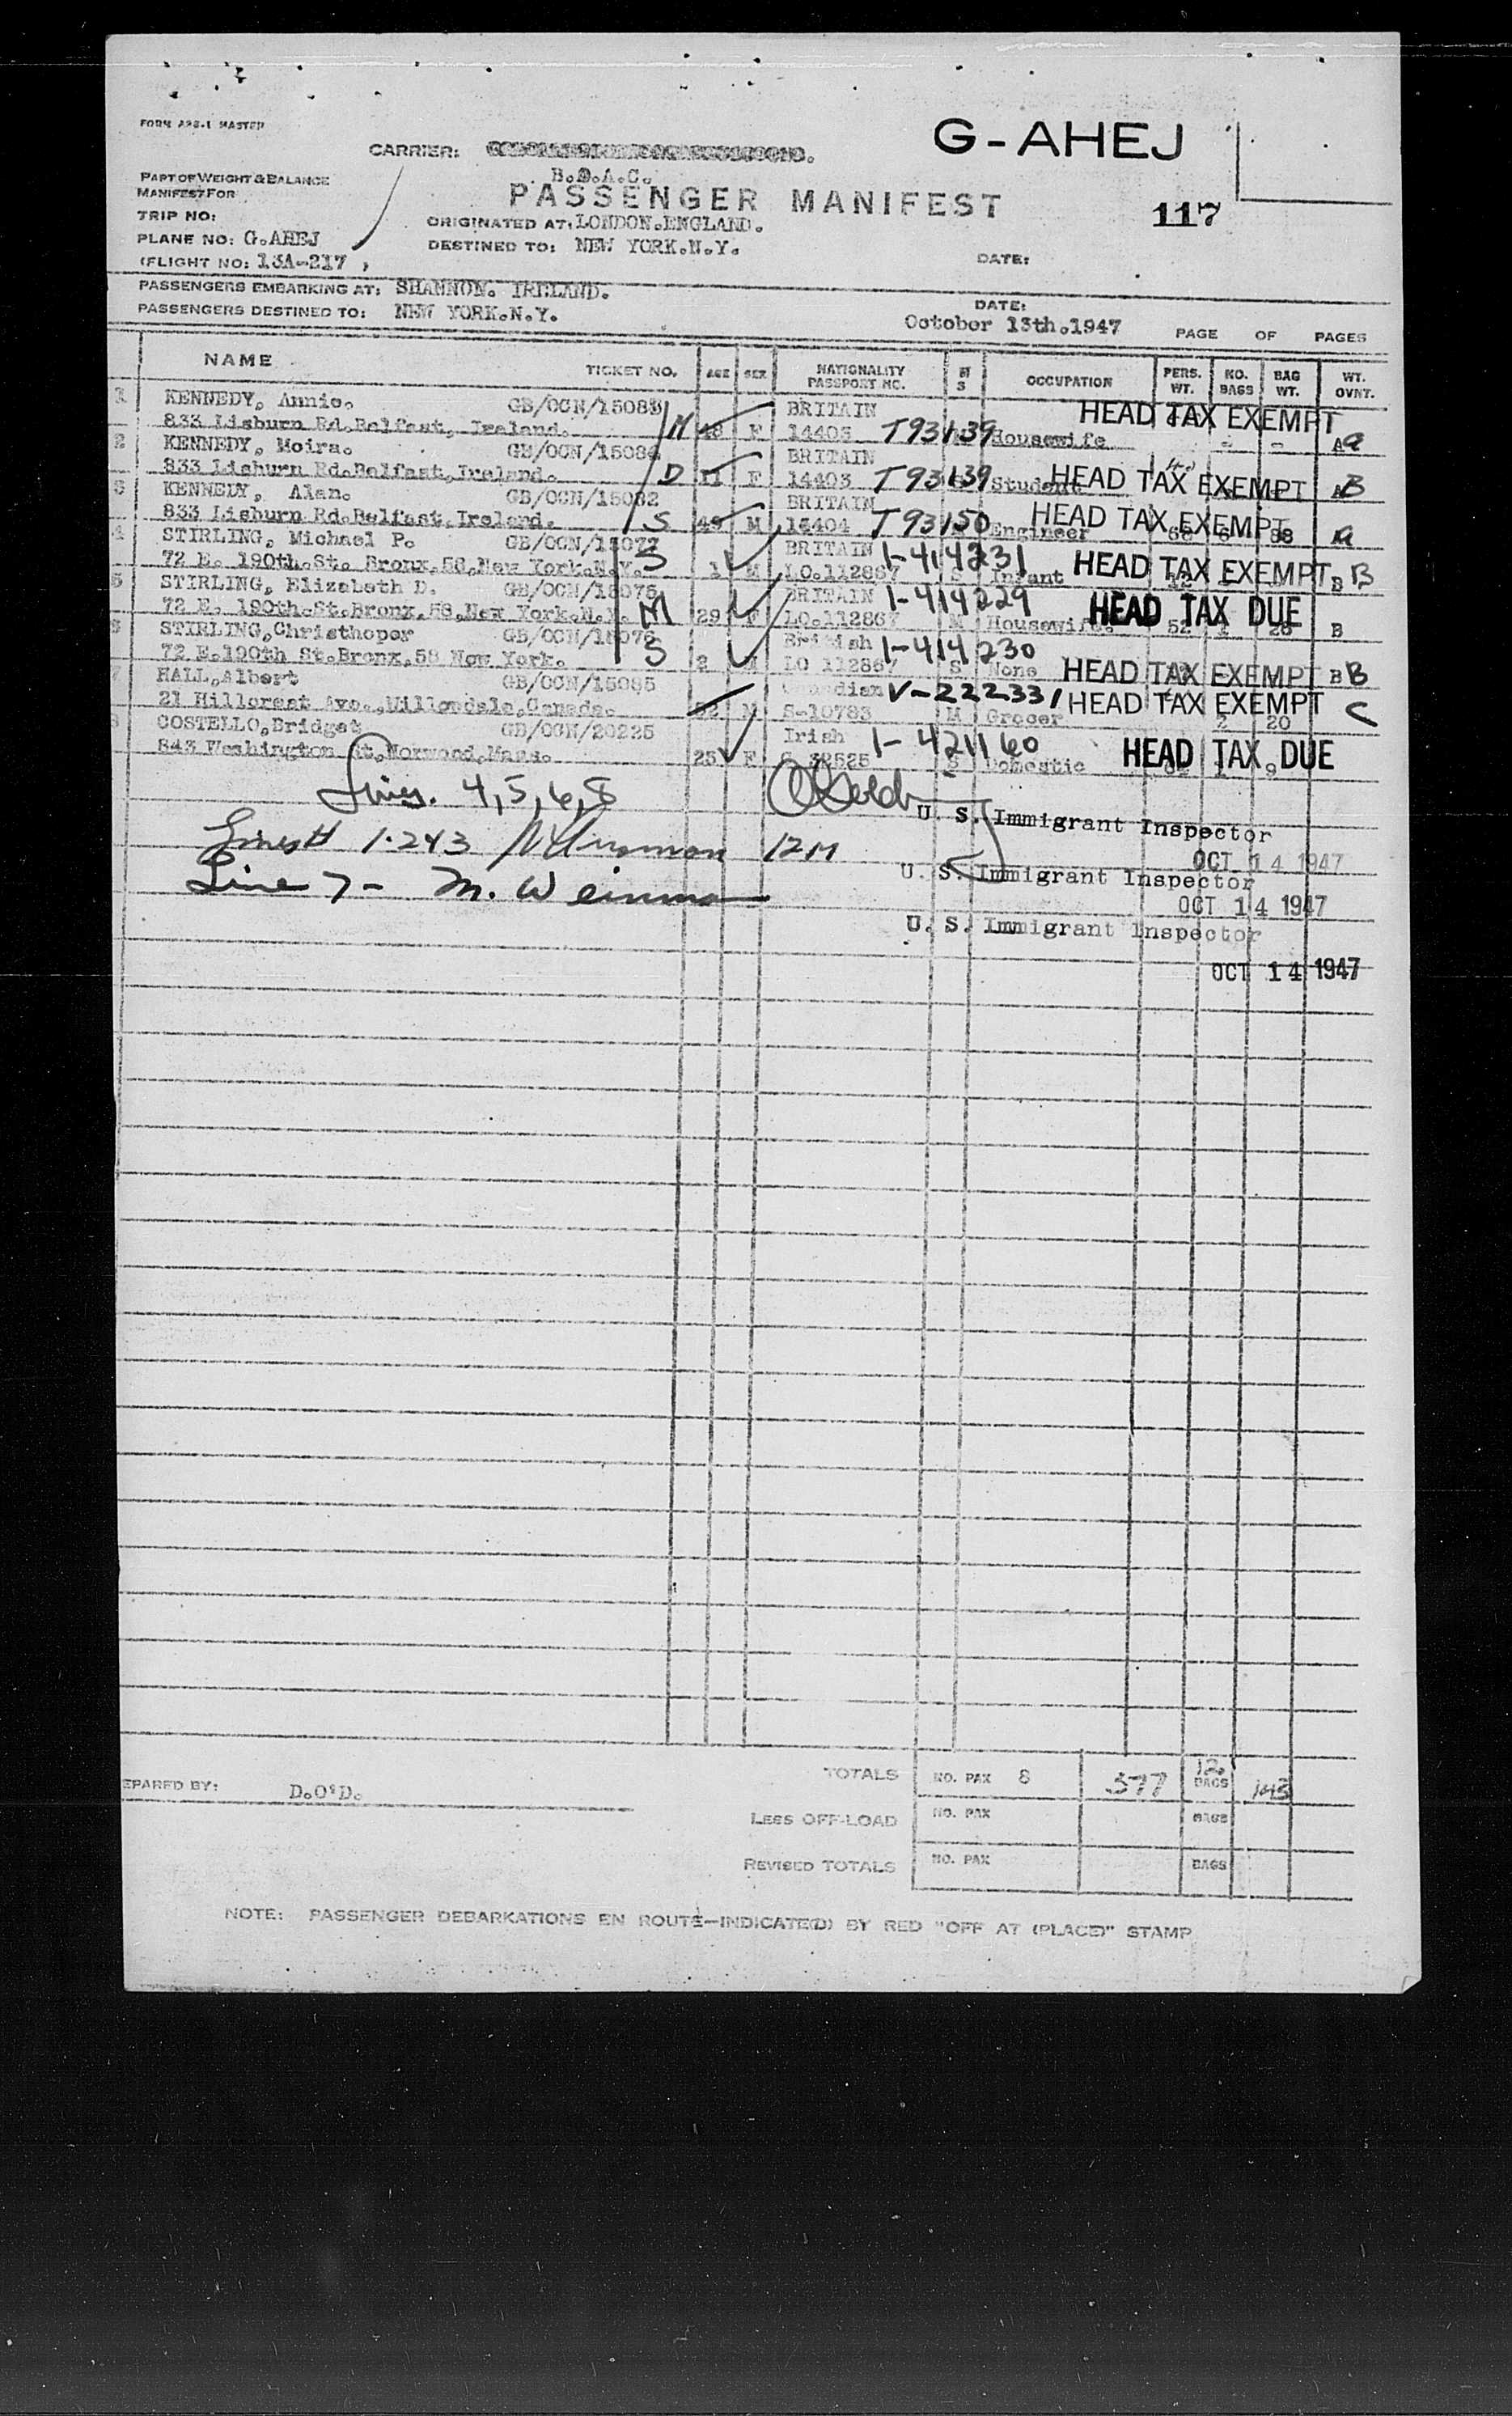 FORM
G-AHEJ
CARRIER:
B.O.A.C.
PART OF WEIGHT & BALANCE
MANIFEST FOR
PASSENGER MANIFEST
117
TRIP NO:
ORIGINATED AT: LONDON.ENGLAND.
PLANE NO: G.AHEJ
DESTINED TO: NEW YORK.N.Y.
(FLIGHT NO: 13A-217 )
DATE:
PASSENGERS EMBARKING AT: SHANNON. IRELAND.
DATE:
PASSENGERS DESTINED TO: NEW YORK.N.Y.
October 13th.1947 PAGE OF PAGES
NAME TICKET NO. AGE SEX NATIONALITY PASSPORT NO. M S OCCUPATION PERS. WT. NO. BAGS BAG WT. WT. OVNT.
1 KENNEDY, Annie. BRITAIN HEAD TAX EXEMPT
833 Lisburn Rd.Belfast, Ireland. M F T93139 Housewife - - A a
2 KENNEDY, Moira. BRITAIN
833 Lisburn Rd.Belfast,Ireland. D 11 F 14403 T93139 Student HEAD TAX EXEMPT B
3 KENNEDY, Alan. GB/OCN/15082 BRITAIN
833 Lisburn Rd.Belfast,Ireland. S M T93150 Engineer HEAD TAX EXEMPT a
4 STIRLING, Michael P. GB/OCN/15077 BRITAIN 1-414231
72 E. 190th.St. Bronx.58,New York.N.Y. S 1 M LO.112867 S Infant HEAD TAX EXEMPT B B
5 STIRLING, Elizabeth D. GB/OCN/15075 BRITAIN 1-414229
72 E. 190th.St.Bronx.58,New York.N.Y. M 29 F LO.112867 M Housewife. HEAD TAX DUE 52 1 B
6 STIRLING,Christhoper GB/OCN/15076 British 1-414230
72 E.190th St.Bronx.58 New York. S 2 M LO 112867 S None HEAD TAX EXEMPT B B
7 HALL,Albert GB/OCN/15085 Canadian V-222331 HEAD TAX EXEMPT
21 Hillcrest Ave.,Willowdale,Canada. M S-10783 M Grocer 2 20 C
8 COSTELLO,Bridget GB/OCN/20225 Irish 1-421160
843 Washington St,Norwood,Mass. 25 F S Domestic HEAD TAX DUE
Lines. 4,5,6,8
U. S. Immigrant Inspector
OCT 14 1947
Lines 1.2&3
U. S. Immigrant Inspector
OCT 14 1947
Line 7 - M. Weinman
U. S. Immigrant Inspector
OCT 14 1947
TOTALS NO. PAX 8 377 12 BAGS 143
EPARED BY: D.O'D.
LESS OFF-LOAD NO. PAX BAGS
REVISED TOTALS NO. PAX BAGS
NOTE: PASSENGER DEBARKATIONS EN ROUTE-INDICATE(D) BY RED "OFF AT (PLACE)" STAMP